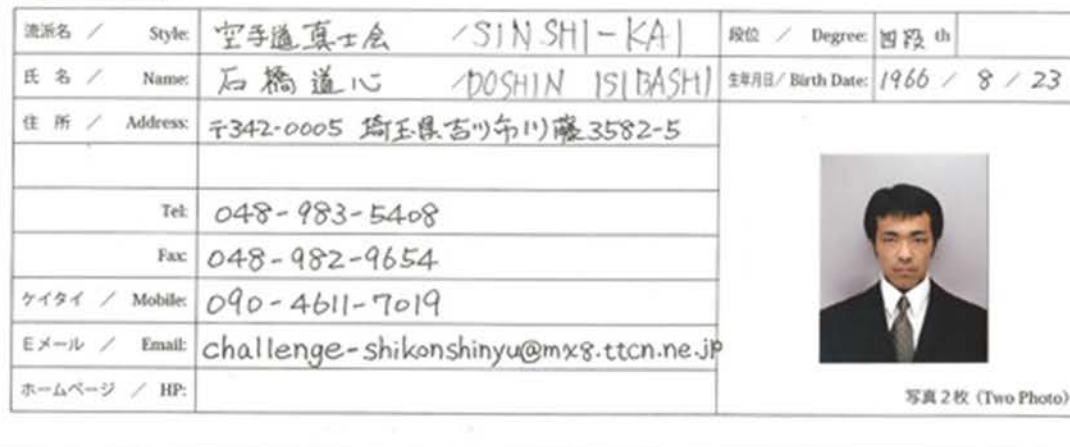 流派名 / Style: 空手道真士会 /SINSHI-KAI 段位 / Degree: 四段 th
氏 名 / Name: 石橋道心 /DOSHIN ISIBASHI 生年月日/ Birth Date: 1966 / 8 / 23
住 所 / Address: 〒342-0005 埼玉県吉川市川藤3582-5
Tel: 048-983-5408
Fax: 048-982-9654
ケイタイ / Mobile: 090-4611-7019
Eメール / Email: challenge-shikonshinyu@mx8.ttcn.ne.jp
ホームページ / HP:
写真2枚 (Two Photo)